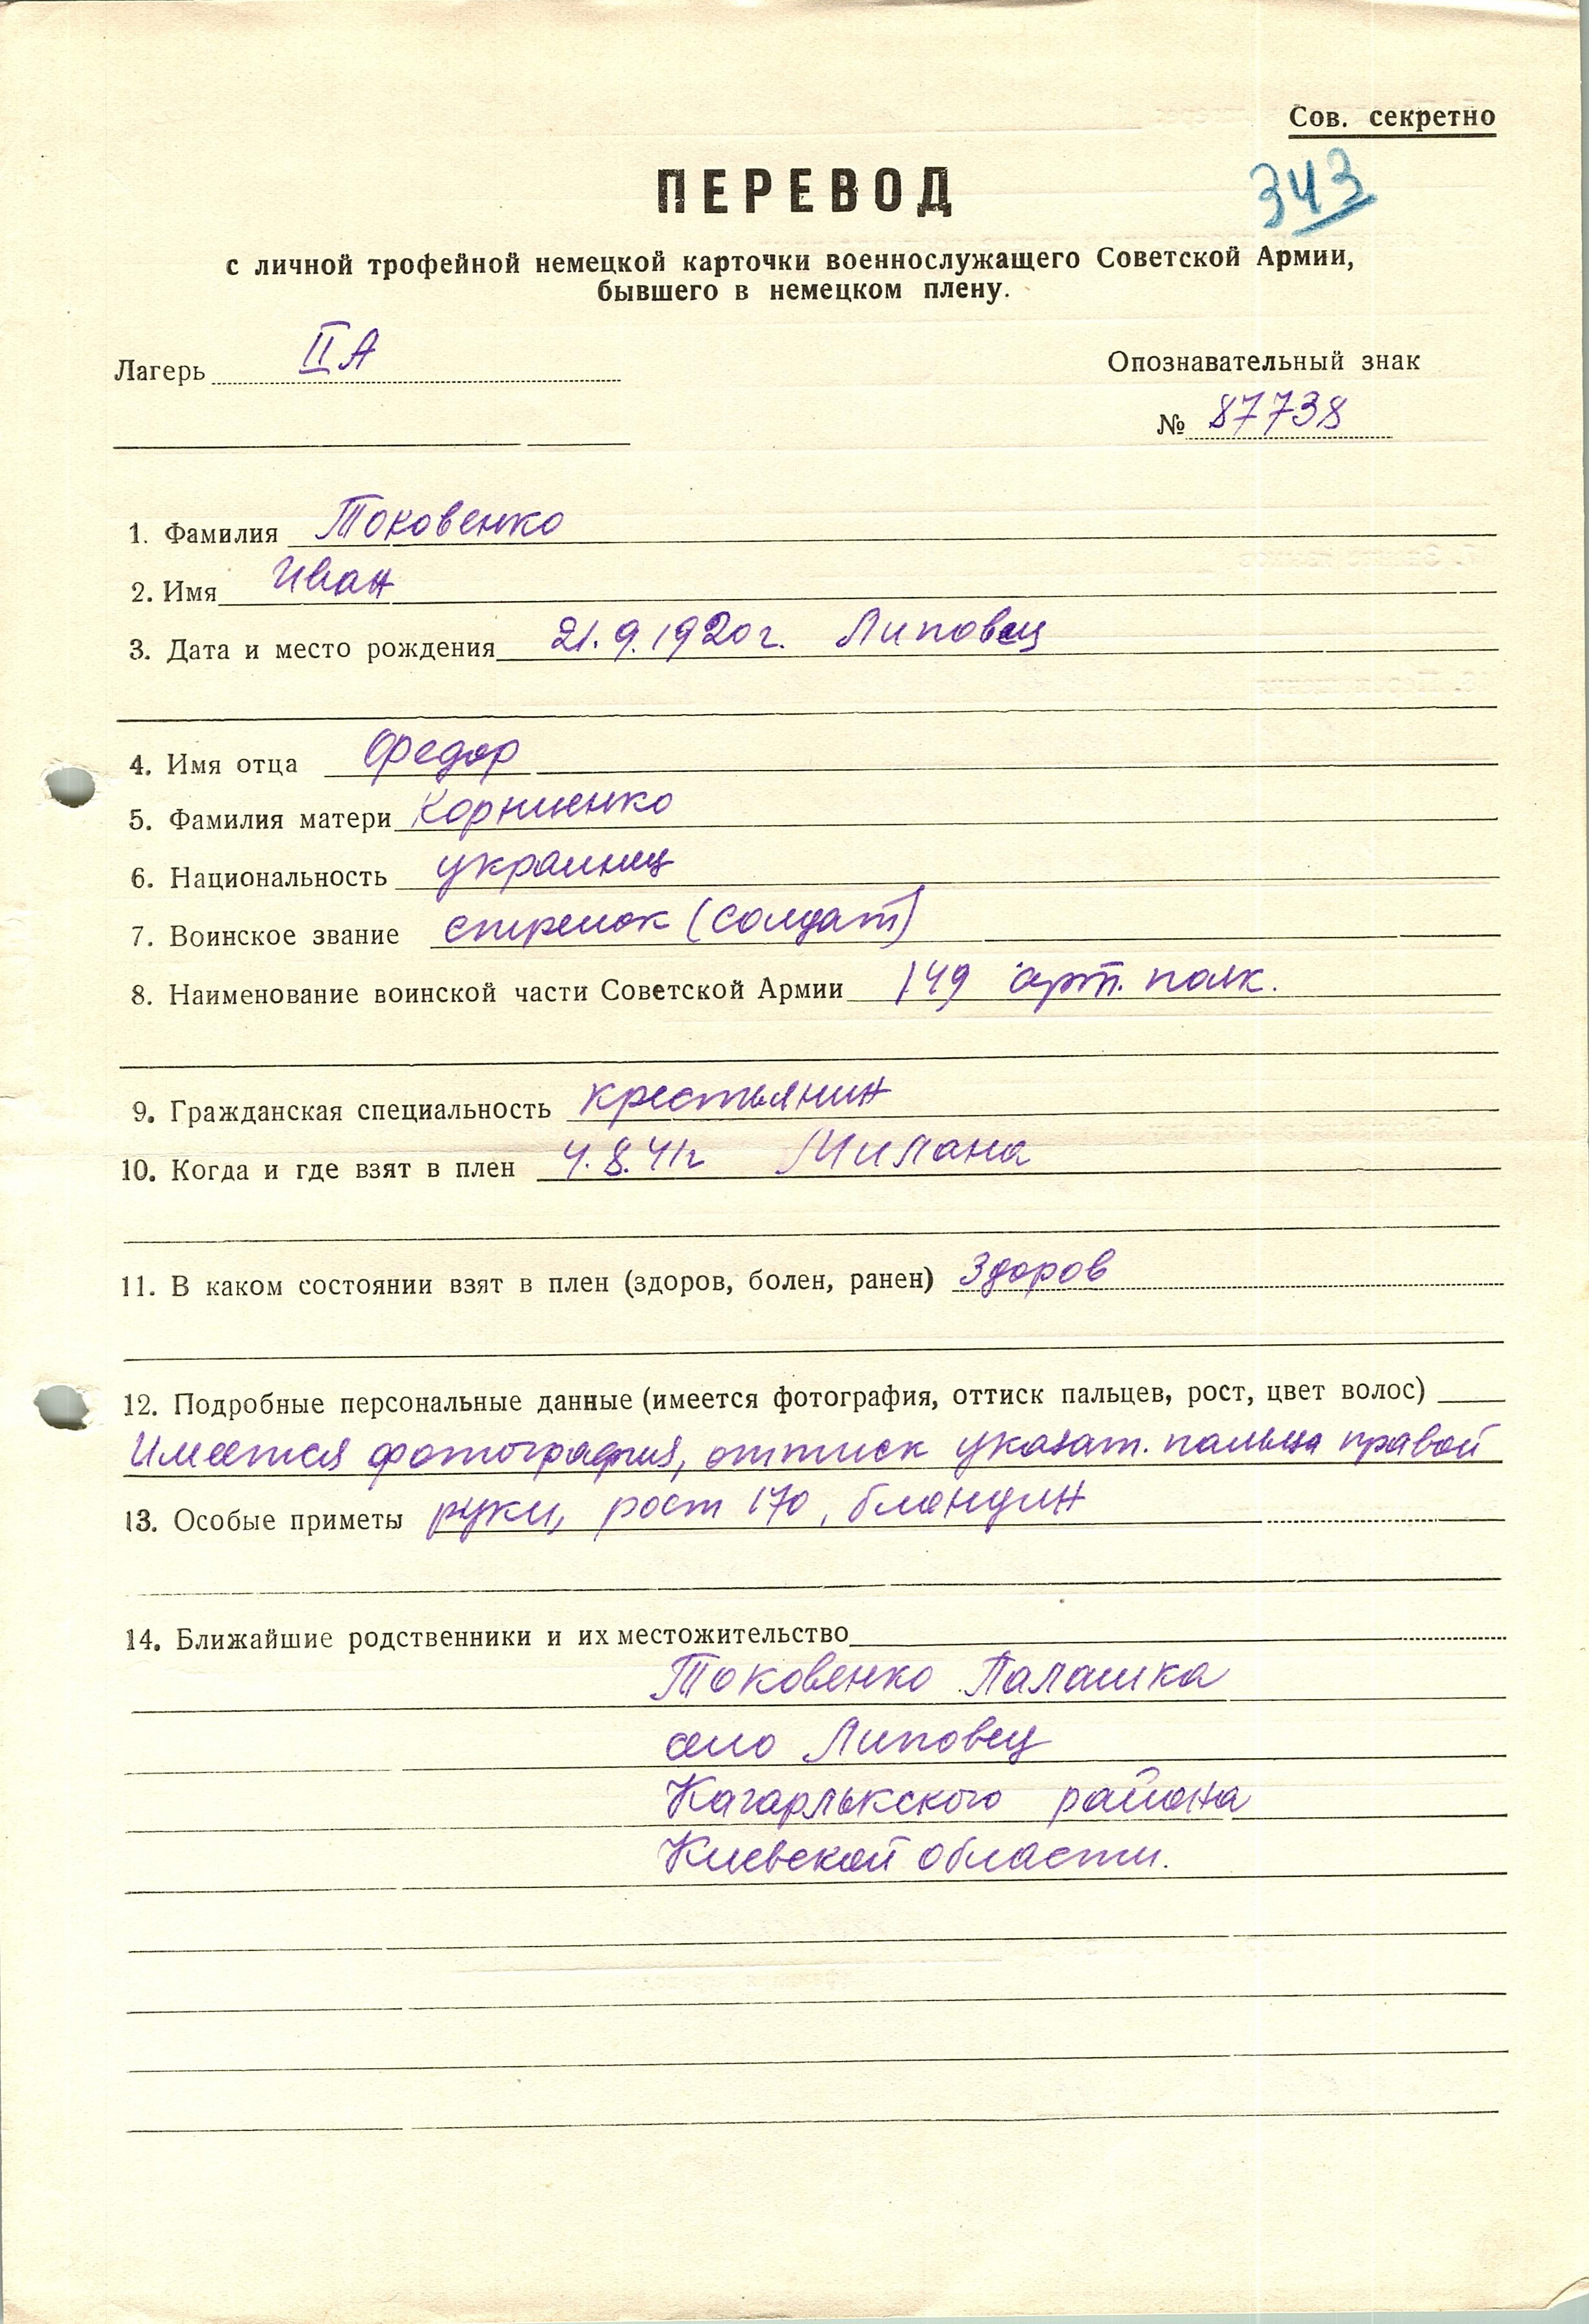 Сов. секретно
343
ПЕРЕВОД
с личной трофейной немецкой карточки военнослужащего Советской Армии,
бывшего в немецком плену.
Лагерь II А
Опознавательный знак
№ 87738
1. Фамилия Токовенко
2. Имя Иван
3. Дата и место рождения 21.9.1920 г. Липовец
4. Имя отца Федор
5. Фамилия матери Корниенко
6. Национальность украинец
7. Воинское звание стрелок (солдат)
8. Наименование воинской части Советской Армии 149 арт. полк.
9. Гражданская специальность крестьянин
10. Когда и где взят в плен 4.8.41г Милана
11. В каком состоянии взят в плен (здоров, болен, ранен) Здоров
12. Подробные персональные данные (имеется фотография, оттиск пальцев, рост, цвет волос)
Имеется фотография, оттиск указат. пальца правой
13. Особые приметы руки, рост 170, блондин
14. Ближайшие родственники и их местожительство
Токовенко Палашка
село Липовец
Кагарлыкского района
Киевской области.